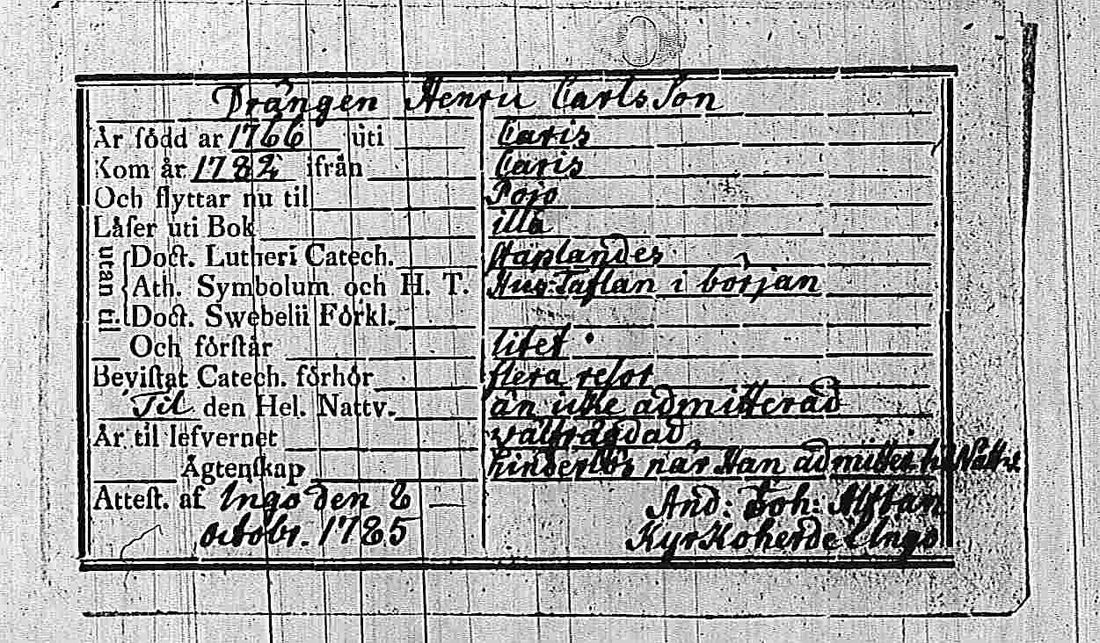 Drängen Henric Carls Son
År född år 1766 uti Caris
Kom år 1782 ifrån Caris
Och flyttar nu til Pojo
Läser uti Bok illa
utan til Doct. Lutheri Catech. staplandes
Ath. Symbolum och H. T. Hus-Taflan i början
Doct. Swebelii Förkl.
Och förstår litet
Bevistat Catech. förhör flera resor
Til den Hel. Nattv. än icke admitterad
Är til lefvernet välfrägdad
Ägtenskap hinderlös när Han admitter. til Natt.v.
Attest. af Ingo den 8 And: Joh:
octobr. 1785 Kyrkoherde i Ingo